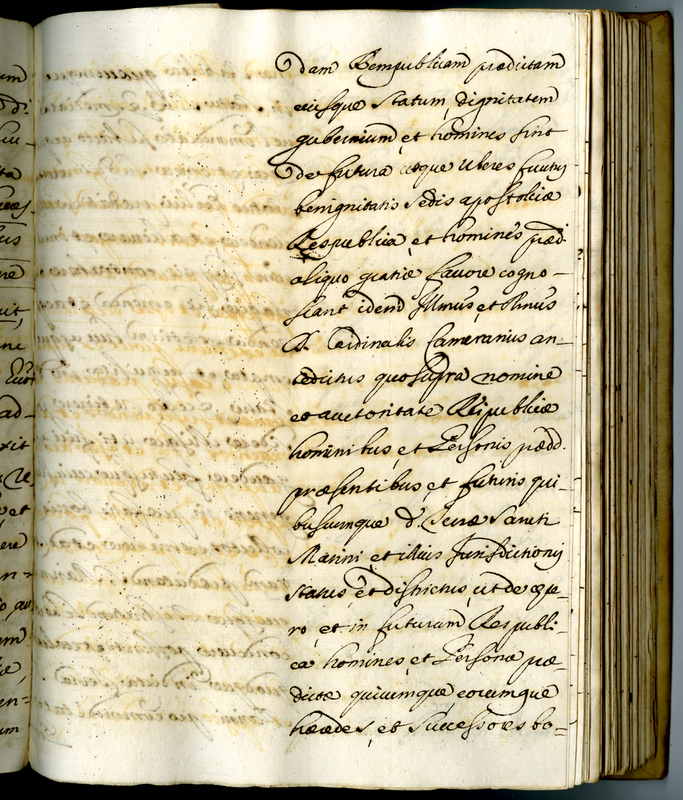 dam Rempublicam prædictam
eiusque Statum, dignitatem
gubernium, et homines sint
de futura atque Uberes fructus
benignitatis Sedis apostolicæ
Respublica, et homines præd.
aliquo gratiæ favore cogno-
scant idem Illmus, et Rmus
D. Cardinalis Camerarius an-
tedictus quo supra nomine
et auctoritate Reipublicæ
hominibus, et Personis prædd.
præsentibus, et futuris qui-
buscumque d. Terræ Sancti
Marini, et illius Jurisdictionis
status, et districtus, ut de cæte-
ro, et in futurum Respubli-
ca homines, et Personæ præ-
dictæ quicumque eorumque
hæredes, et Successores bo-